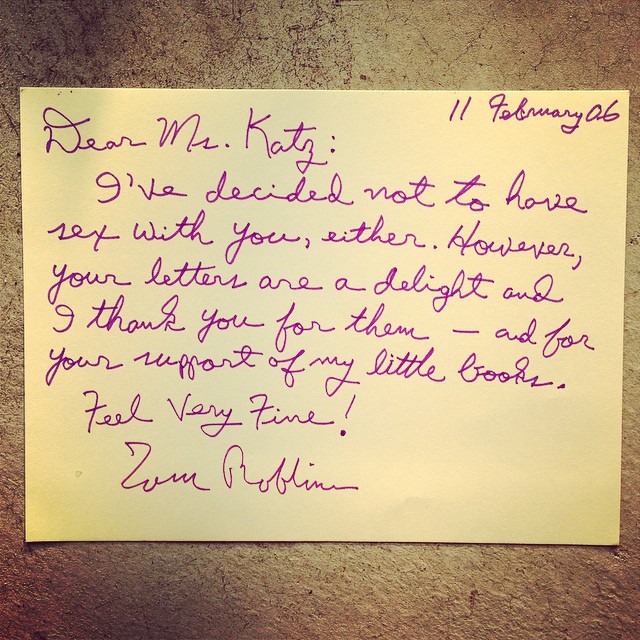 11 February 06
Dear Ms. Katz:
I've decided not to have
sex with you, either. However,
your letters are a delight and
I thank you for them — and for
your support of my little books.
Feel Very Fine!
Tom Robbins